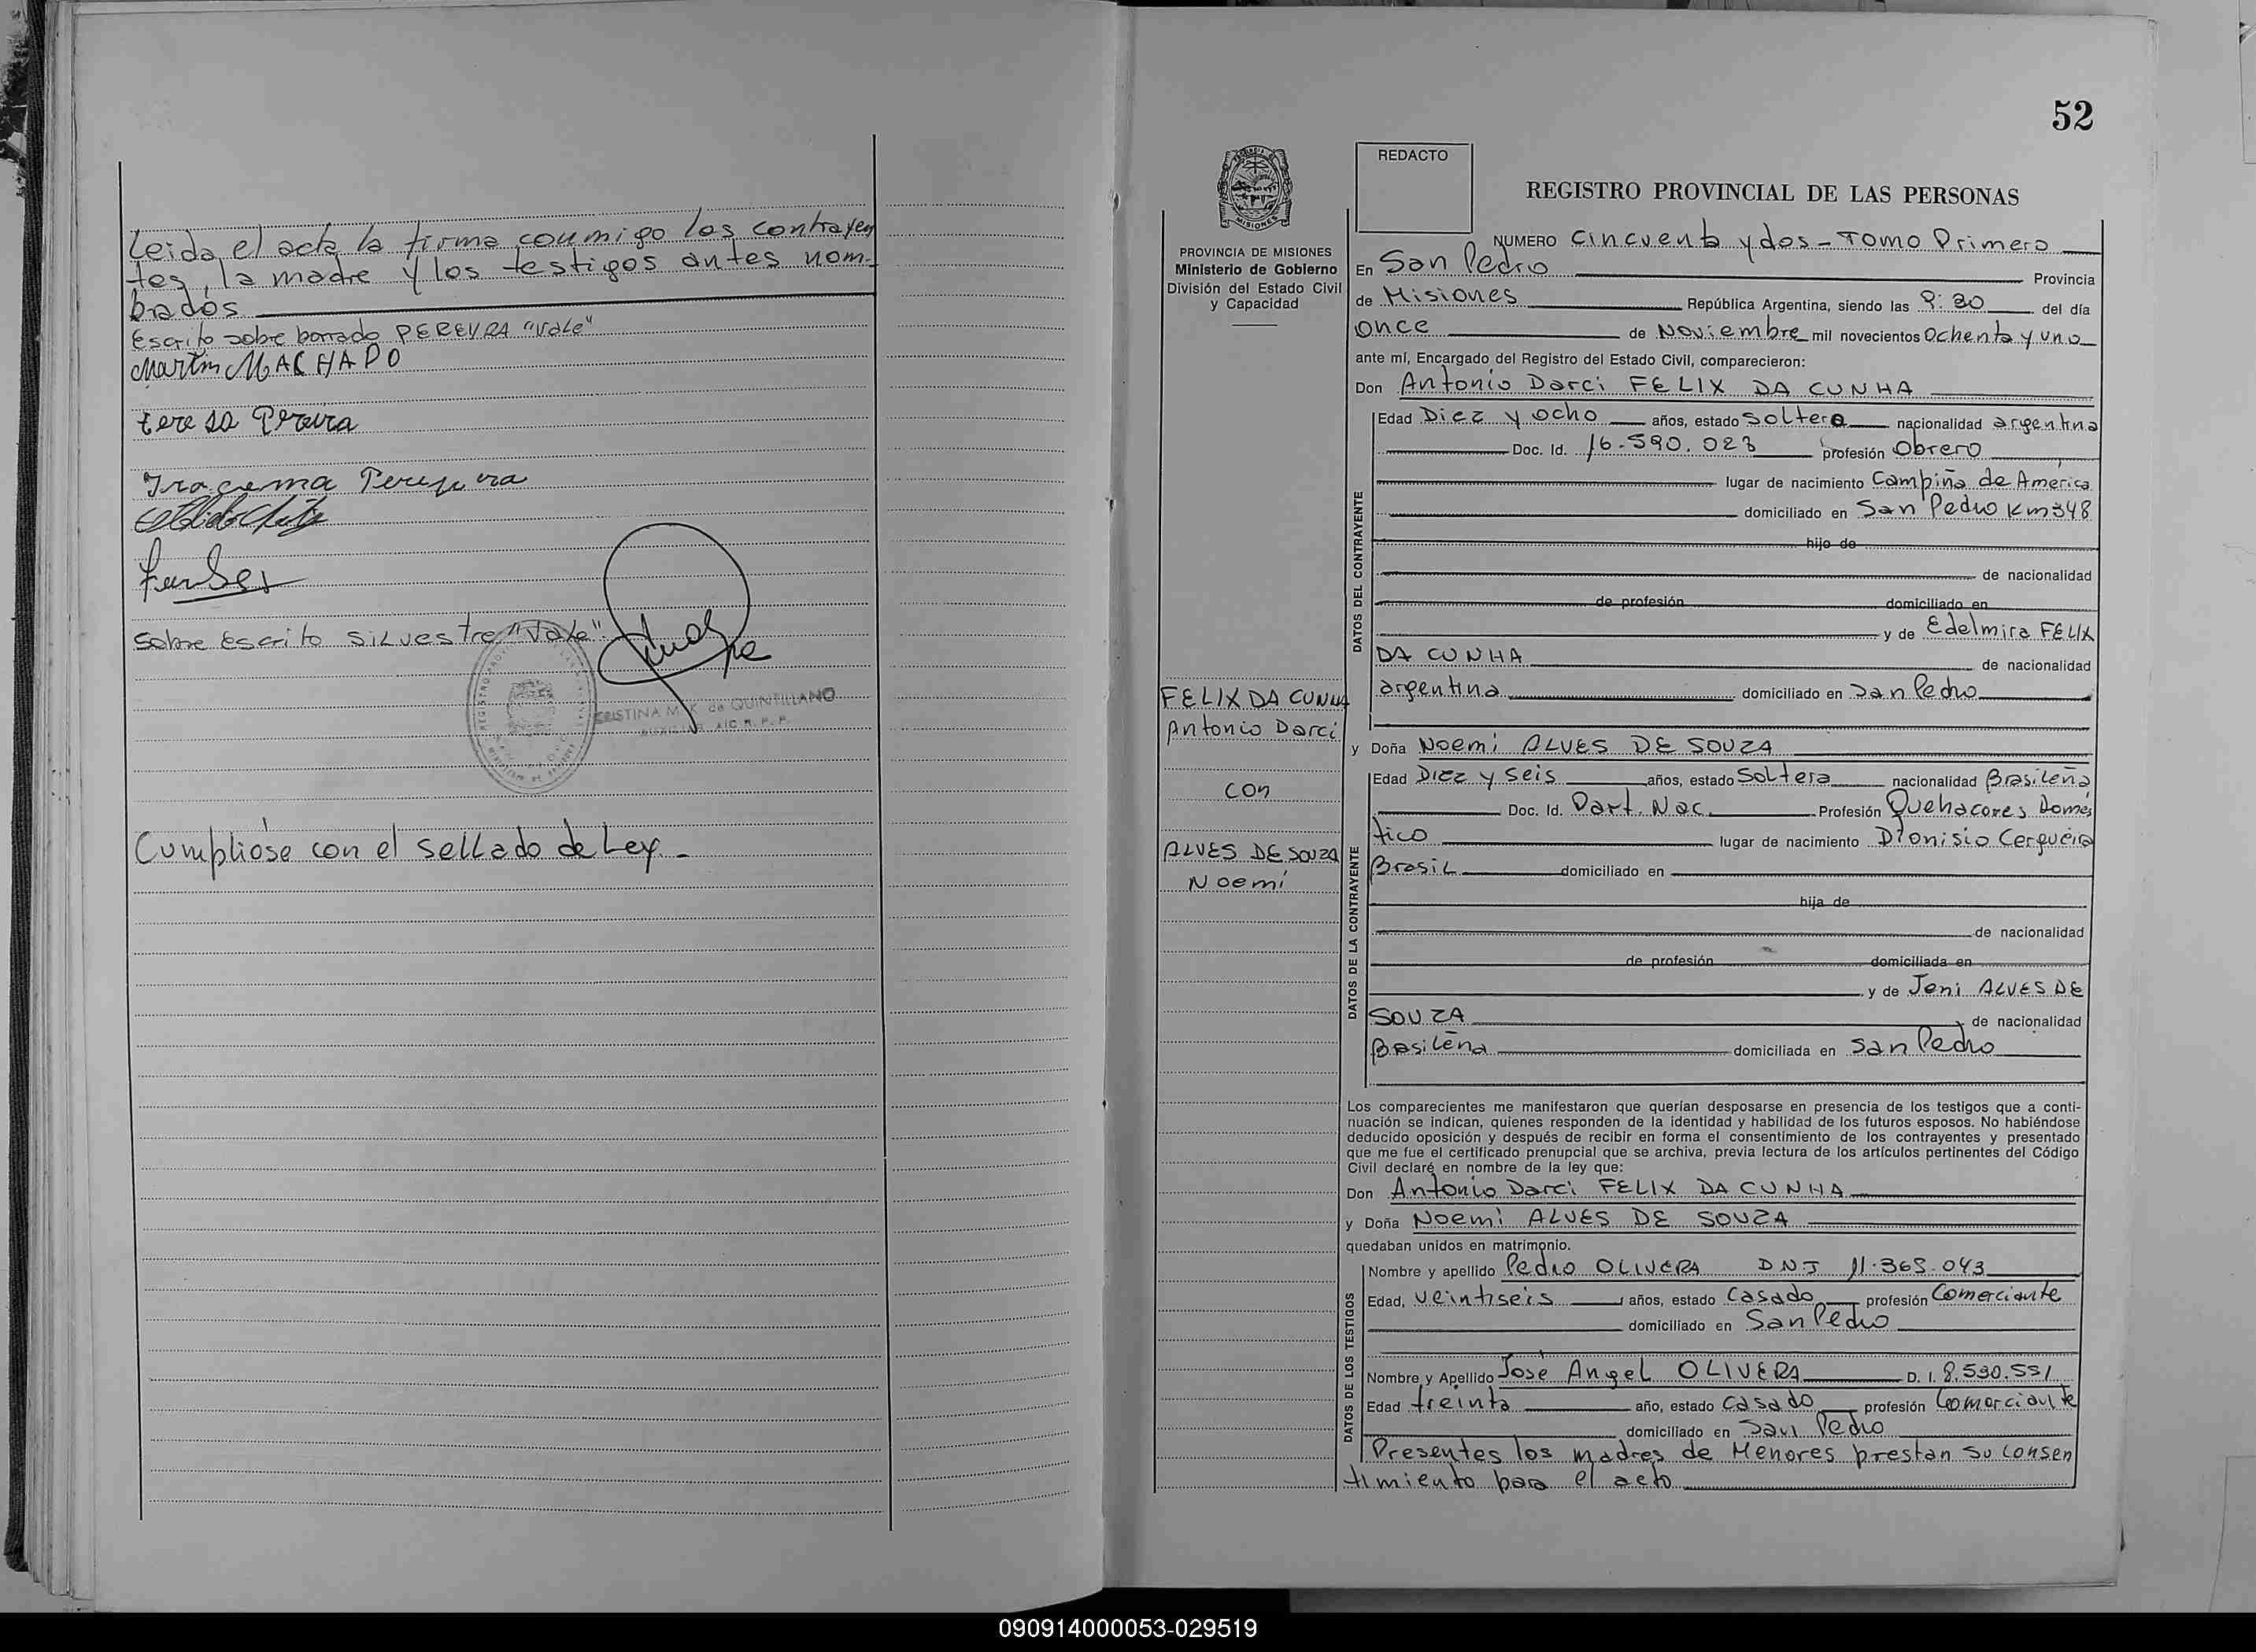 Leida el acta la firma conmigo los contrayen
tes, la madre y los testigos antes nom-
brados
Escrito sobre borrado PEREYRA "Vale"
Martin MACHADO
teresa Pereira
Iracema Pereyra
Sobre Escrito SILVESTRE "Vale"
CRISTINA M. K. de QUINTILLANO
Cumpliose con el sellado de Ley -
52
REDACTO
REGISTRO PROVINCIAL DE LAS PERSONAS
PROVINCIA DE MISIONES
Ministerio de Gobierno
División del Estado Civil
y Capacidad
NUMERO Cincuenta y dos - Tomo Primero
En San Pedro Provincia
de Misiones República Argentina, siendo las 9:30 del día
once de Noviembre mil novecientos Ochenta y uno
ante mí, Encargado del Registro del Estado Civil, comparecieron:
Don Antonio Darci FELIX DA CUNHA
DATOS DEL CONTRAYENTE
Edad Diez y ocho años, estado Soltero nacionalidad argentina
Doc. Id. 16.590.023 profesión Obrero
lugar de nacimiento Campiña de América
domiciliado en San Pedro Km 348
hijo de
de nacionalidad
de profesión domiciliado en
y de Edelmira FELIX
DA CUNHA de nacionalidad
argentina domiciliado en San Pedro
FELIX DA CUNHA
Antonio Darci
con
ALVES DE SOUZA
Noemí
y Doña Noemi ALVES DE SOUZA
DATOS DE LA CONTRAYENTE
Edad Diez y seis años, estado Soltera nacionalidad Brasileña
Doc. Id. Part. Nac. Profesión Quehacores Domés
tico lugar de nacimiento Dionisio Cerqueira
Brasil domiciliado en
hija de
de nacionalidad
de profesión domiciliada en
y de Joni ALVES DE
SOUZA de nacionalidad
Brasileña domiciliada en San Pedro
Los comparecientes me manifestaron que querían desposarse en presencia de los testigos que a conti-
nuación se indican, quienes responden de la identidad y habilidad de los futuros esposos. No habiéndose
deducido oposición y después de recibir en forma el consentimiento de los contrayentes y presentado
que me fue el certificado prenupcial que se archiva, previa lectura de los artículos pertinentes del Código
Civil declaré en nombre de la ley que:
Don Antonio Darci FELIX DA CUNHA
y Doña Noemi ALVES DE SOUZA
quedaban unidos en matrimonio.
DATOS DE LOS TESTIGOS
Nombre y apellido Pedro OLIVERA DNI 11.369.043
Edad, veintiseis años, estado Casado profesión Comerciante
domiciliado en San Pedro
Nombre y Apellido José Angel OLIVERA D. I. 8.530.551
Edad treinta año, estado casado profesión Comerciante
domiciliado en San Pedro
Presentes los madres de Menores prestan su consen
timiento para el acto
090914000053-029519